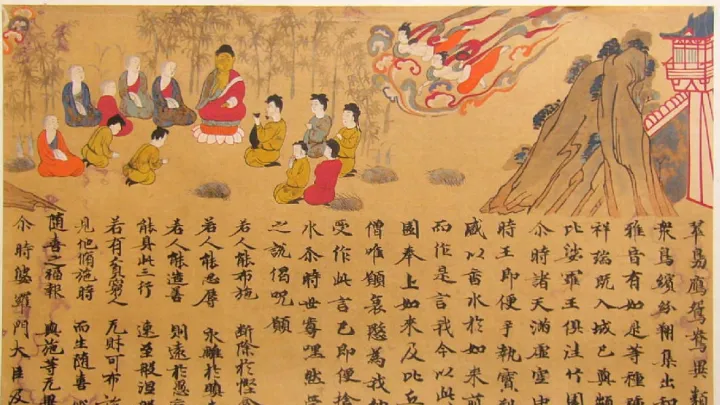 翠鳧鴈鴛鴦異類
衆鳥繽紛翔集出和
雅音有如是等種
祥瑞既入城已與頻
比娑羅王俱往竹園
尒時諸天滿虛空中
時王即便手執寶
盛以香水於如來前
而作是言我今以此
園奉上如來及比丘
僧唯願哀愍為我
受作此言已即便捨
水尒時世尊嘿然
之說偈呪願
若人能布施 斷除於慳
若人能忍辱 永離於瞋
若人能造善 則遠於愚
能具此三行 速至般涅
若有貧窮人 无財可布
見他脩施時 而生隨喜
隨喜之福報 與施等无異
尒時婆羅門大臣及